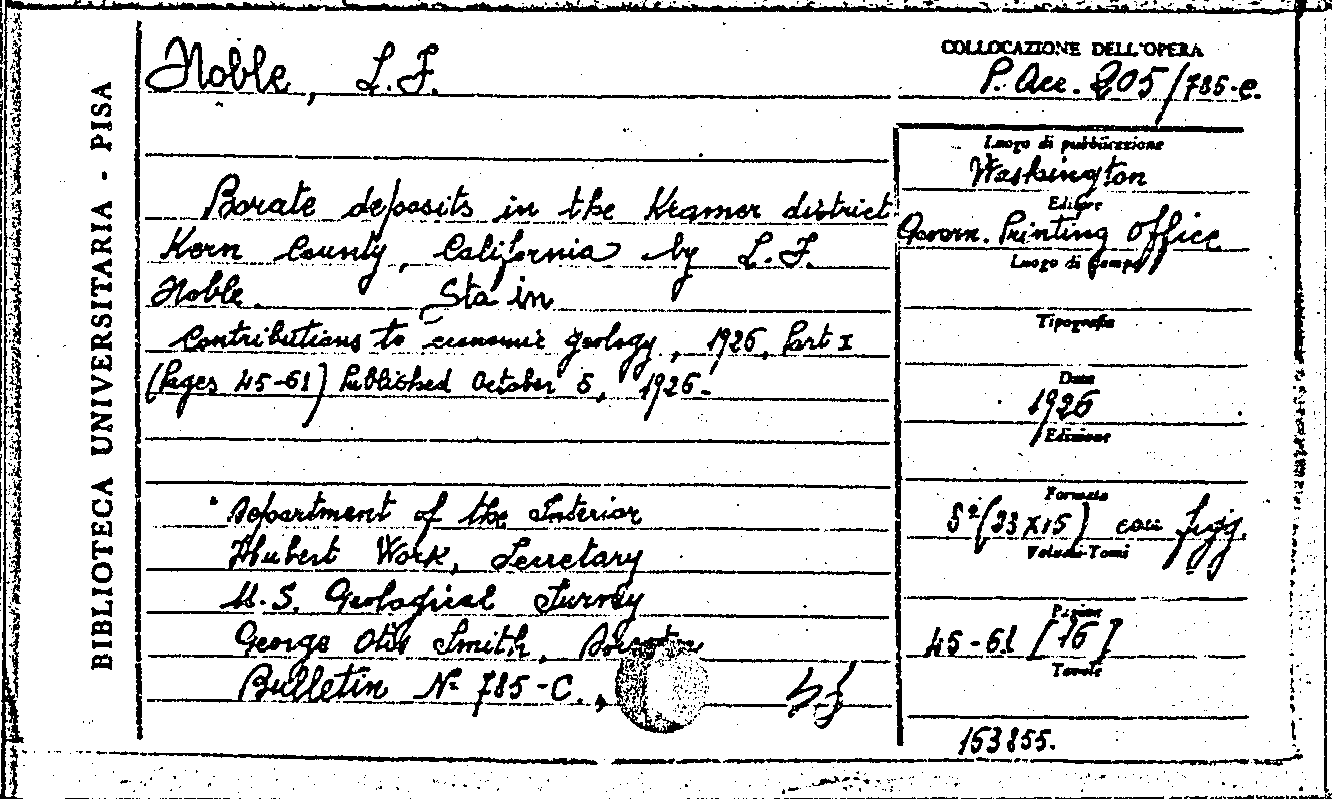 BIBLIOTECA UNIVERSITARIA - PISA
Noble, L.F.
Borate deposits in the Kramer district
Kern County, California by L.F.
Noble. Sta in
Contributions to economic geology, 1926, Part I
(Pages 45-61) Published October 5, 1926.-
Department of the Interior
Hubert Work, Secretary
U.S. Geological Survey
George Otis Smith, Director
Bulletin Nº 785-C.,
COLLOCAZIONE DELL'OPERA
P. Acc. 205/785-c.
Luogo di pubblicazione
Washington
Editore
Govern. Printing Office
Luogo di stampa
Tipografia
Data
1926
Edizione
Formato
8º (23x15) con figg.
Volumi-Tomi
Pagine
45-61 [16]
Tavole
153855.